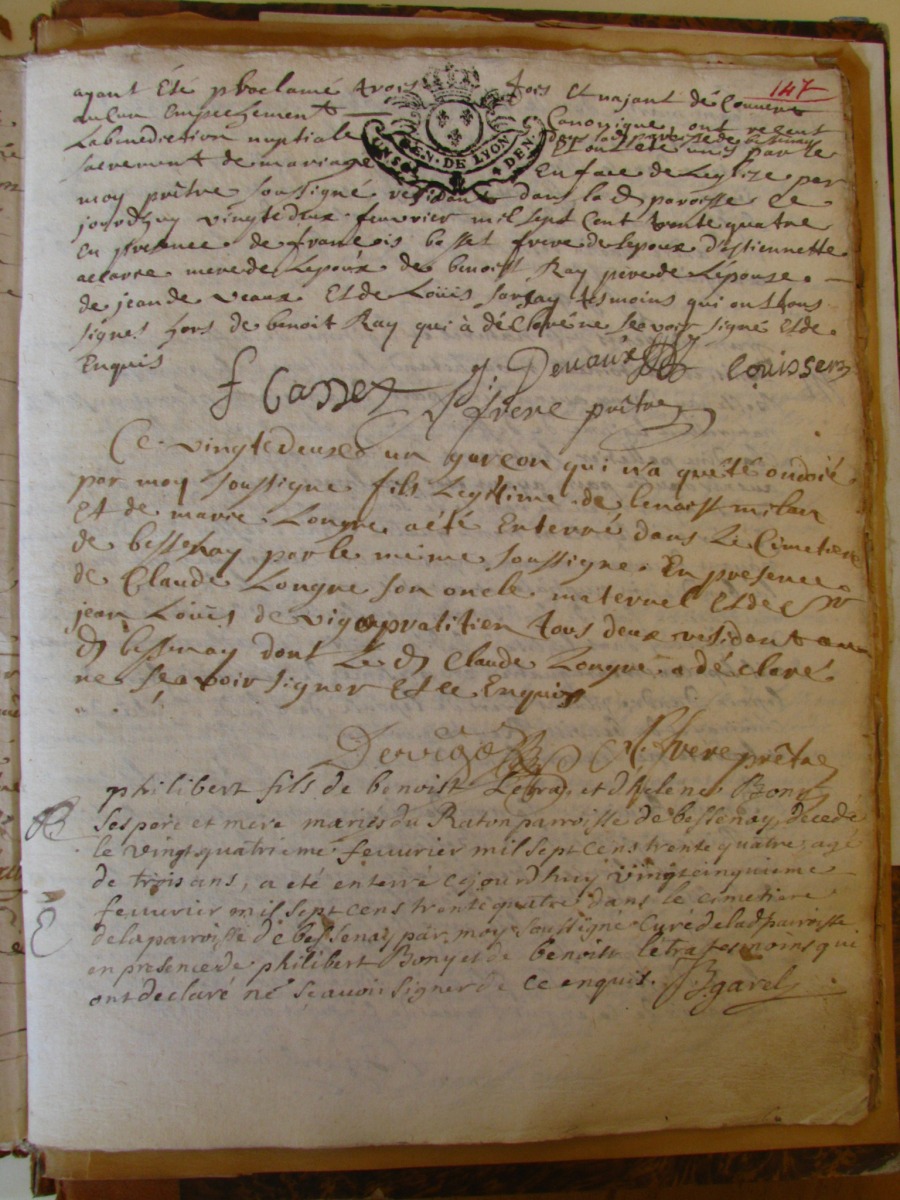 147
ayant Eté proclamé trois fois Et n'ajant découvert
aucun Empechement Canonique ont recent
Labenediction nuptiale et ont été unis par le
sacrement de mariage En face de Leglize par
moy prêtre soussigne residant dans la d paroisse ce
jourdhuy vingtedeux feuvrier mil sept Cent trente quatre
En presence de francois basset frere de Lepoux d'estiennette
mere de Lepoux de benoist Ray pere de Lépouse
de jean de veaux Et de Loüis tesmoins qui ont sous-
signes hors de benoit Ray qui à déclaré ne sçavoir signé Et de
Enquis
GEN. DE LYON
g. Devaux Louis
frere prêtre
Ce vingtedeuxe un garcon qui n'a que été ondoié
par moy soussigne fils Legitime de benoist
Et de marie Longue a été Enterré dans Le Cimetiere
de bessenay par le meme soussigne. En presence
de Claude Longue son oncle maternel Et de Sr
jean Loüis de vigo pratitien tous deux residant au
d bessenay dont Le d Claude Longue a déclaré
ne sçavoir signer Et ce Enquis
Devigo frere prêtre
philibert fils de benoist Letra, et d'helene Bony
ses pere et mere mariés du Raton parroisse de bessenay, decedé
le vingt quatrieme feuvrier mil sept cens trente quatre, agé
de trois ans, a eté enterré cejourd'huy vingtcinquieme
feuvrier mil sept cens trente quatre dans le cimetiere
de la parroisse de bessenay par moy soussigné Curé de lad parroisse
en presence de philibert Bony et de benoist létra tesmoins qui
ont declaré ne sçavoir signer de ce enquis. Bgarel